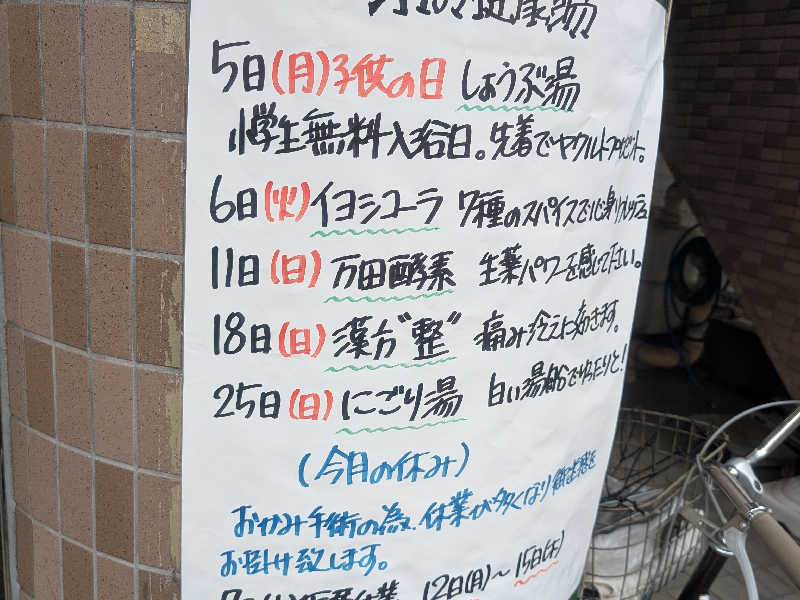 5日(月)子供の日 しょうぶ湯
小学生無料入浴日。先着でヤクルトプレゼント。
6日(火)イヨシコーラ 7種のスパイスで心身リフレッシュ
11日(日)万田酵素 生薬パワーを感じて下さい。
18日(日)漢方"整" 痛み冷えに効きます。
25日(日)にごり湯 白い湯船でゆったりと!
(今月の休み)
おかみ手術の為、休業が多くなり御迷惑を
お掛け致します。
12日(月)〜15日(木)